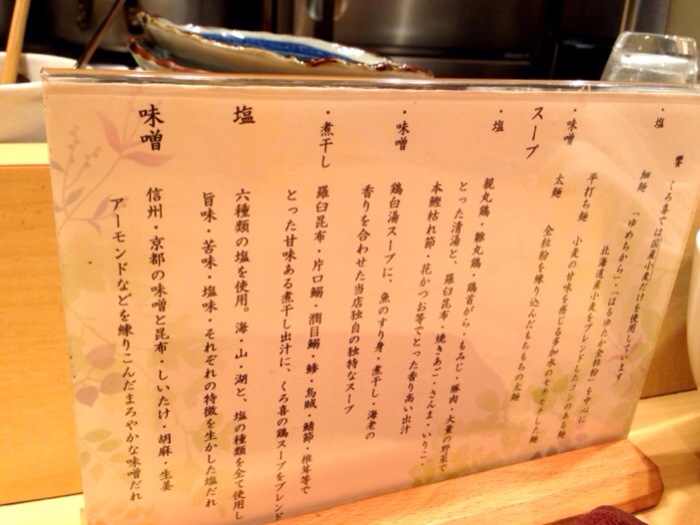 饗 くろ喜では国産小麦だけを使用しています
・塩 細麺 「ゆめちから」・「はるゆたか全粒粉」を中心に
北海道産小麦をブレンドしたコシのある麺
・味噌 平打ち麺 小麦の甘味を感じる多加水のもちもちした麺
太麺 全粒粉を練り込んだもちもちの太麺
スープ
・塩 親丸鶏・雛丸鶏・鶏首がら・もみじ・豚肉・大量の野菜で
とった清湯と、羅臼昆布・焼きあご・さんま・いりこ・
本鰹枯れ節・花かつお等でとった香り高い出汁
・味噌 鶏白湯スープに、魚のすり身・煮干し・海老の
香りを合わせた当店独自の独特なスープ
・煮干し 羅臼昆布・片口鰯・潤目鰯・鯵・烏賊・鯖節・椎茸等で
とった甘味ある煮干し出汁に、くろ喜の鶏スープをブレンド
塩 六種類の塩を使用。海・山・湖と、塩の種類を全て使用し
旨味・苦味・塩味・それぞれの特徴を生かした塩だれ
味噌 信州・京都の味噌と昆布・しいたけ・胡麻・生姜
アーモンドなどを練りこんだまろやかな味噌だれ